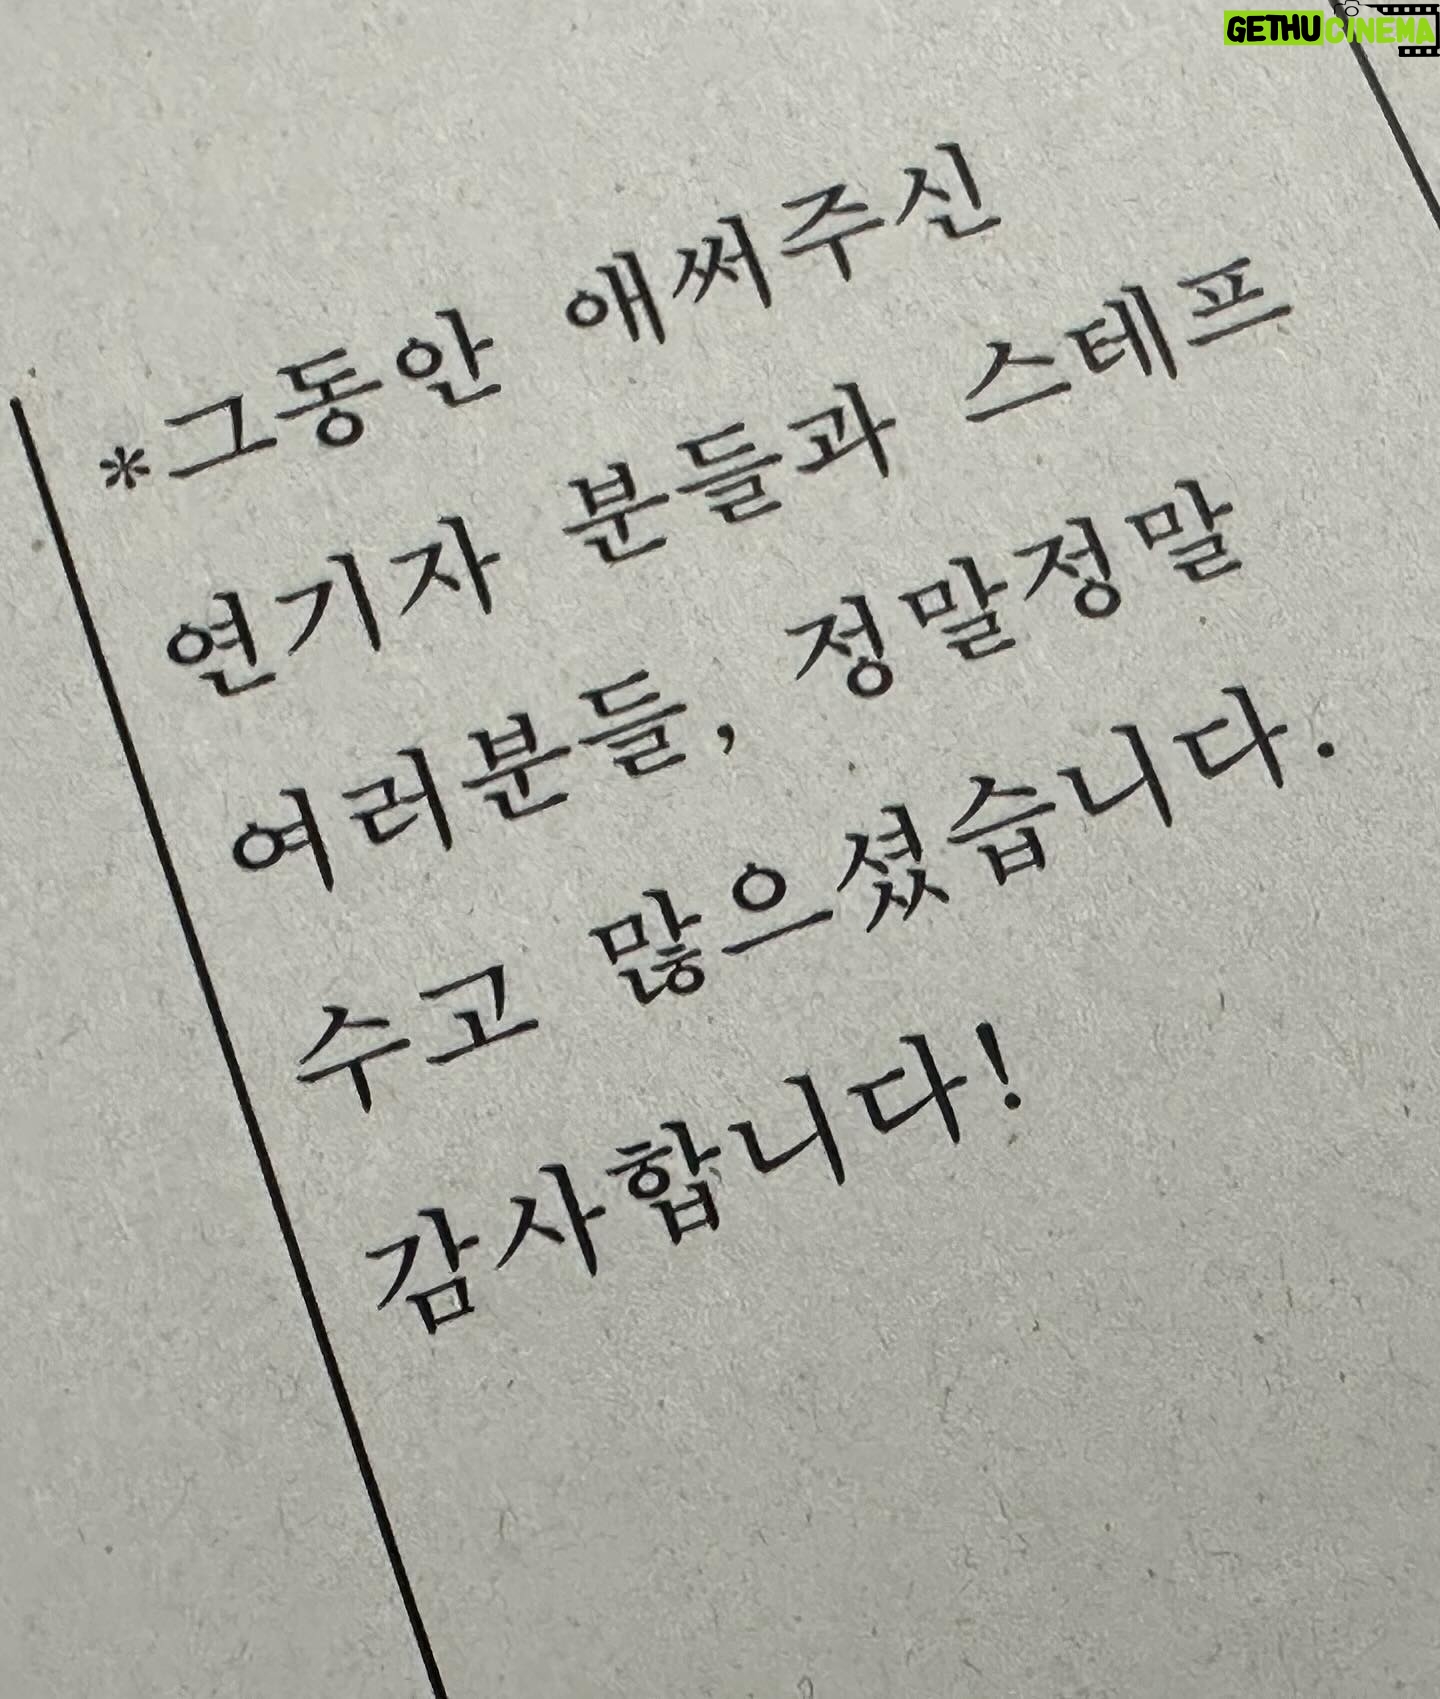 GETHUCINEMA
*그동안 애써주신
연기자 분들과 스테프
여러분들, 정말정말
수고 많으셨습니다.
감사합니다!